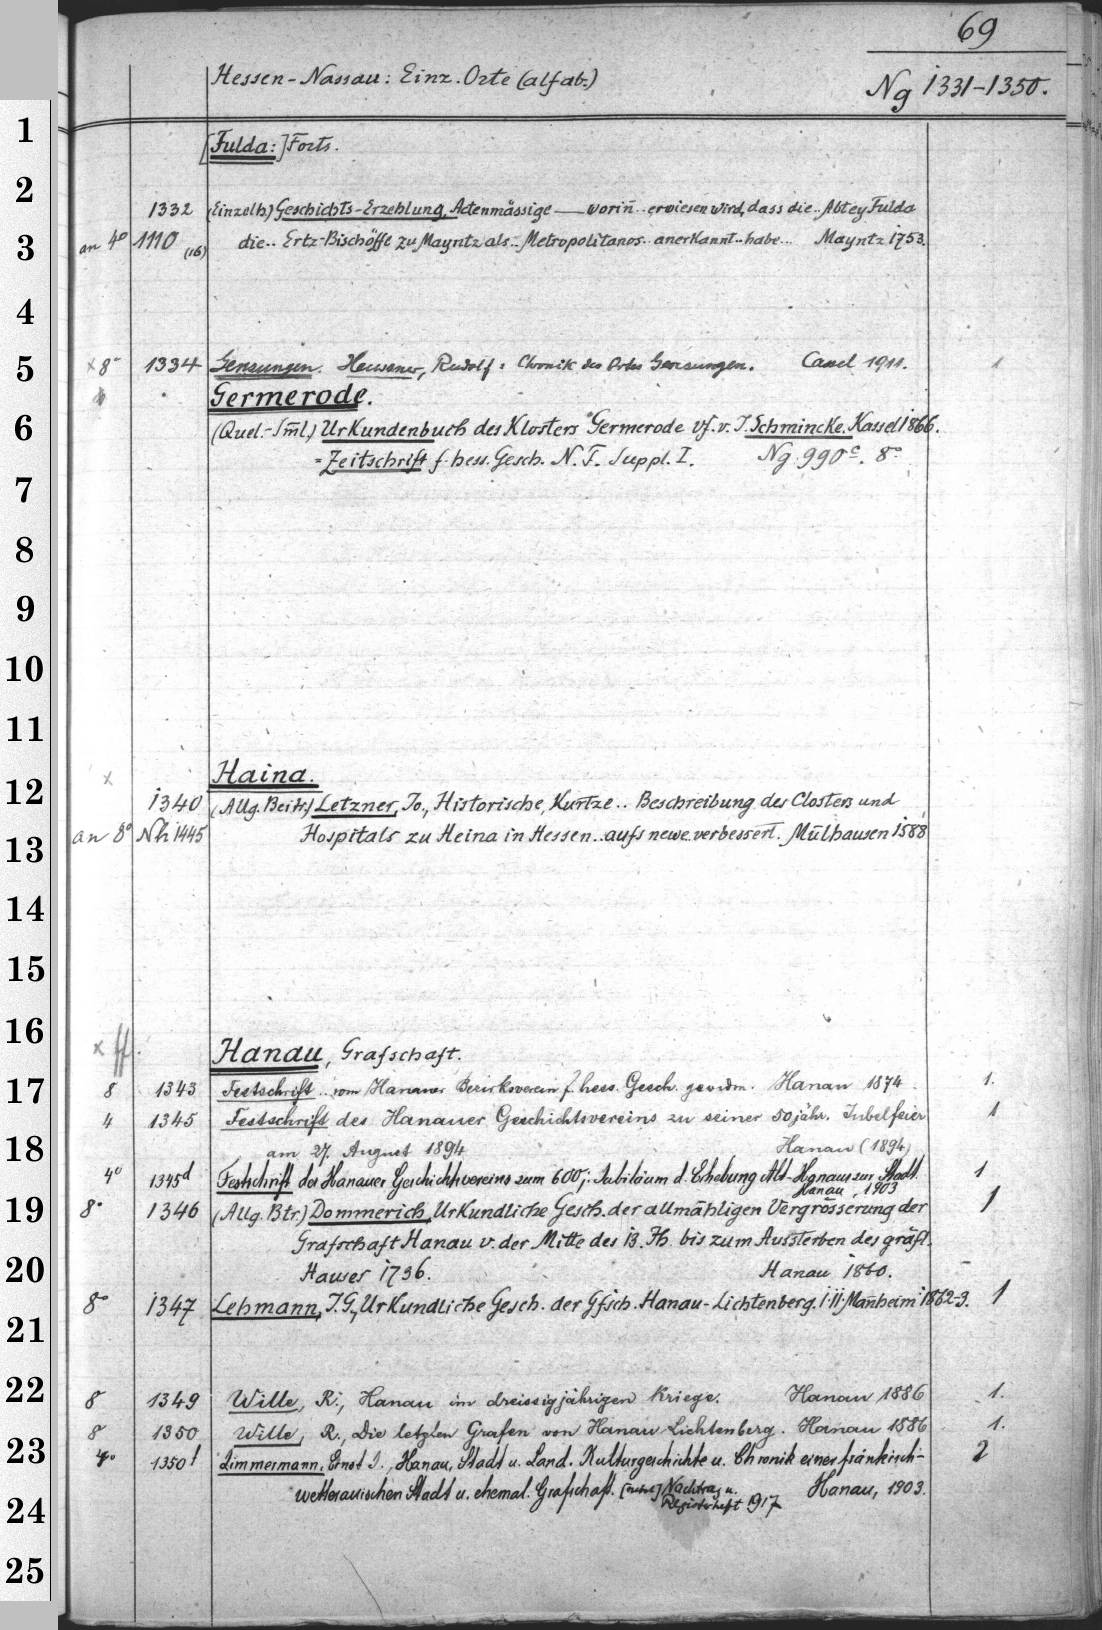 69
Hessen-Nassau: Einz. Orte (alfab.)
Ng 1331-1350.
1
[Fulda:] Forts.
2
1332 (Einzelh.) Geschichts-Erzehlung, Actenmässige — worin̄.. erwiesen wird, dass die.. Abtey Fulda
3
an 4° 1110 (16) die.. Ertz-Bischöffe zu Mayntz als.. Metropolitanos.. anerkannt.. habe... Mayntz 1753.
4
5
x 8° 1334 Gensungen. Heussner, Rudolf: Chronik des Ortes Gensungen. Cassel 1911. 1
Germerode.
6
(Quel.-Sml.) Urkundenbuch des Klosters Germerode vf. v. J. Schmincke. Kassel 1866.
= Zeitschrift f. hess. Gesch. N. F. Suppl. I. Ng 990c. 8°
7
8
9
10
11
Haina.
x
12
1340 (Allg. Beitr.) Letzner, Jo., Historische, Kurtze.. Beschreibung des Closters und
13
an 8° Nh 1445 Hospitals zu Heina in Hessen.. aufs newe verbessert. Mülhausen 1588
14
15
16
x ff.
Hanau, Grafschaft.
17
8 1343 Festschrift.. vom Hanauer Bezirksverein f. hess. Gesch. gewidm. Hanau 1874. 1.
4 1345 Festschrift des Hanauer Geschichtsvereins zu seiner 50jähr. Jubelfeier 1
18
am 27. August 1894 Hanau (1894)
4° 1345d Festschrift des Hanauer Geschichtsvereins zum 600j. Jubiläum d. Erhebung Alt-Hanaus zur Stadt. 1
Hanau, 1903
19
8° 1346 (Allg. Btr.) Dommerich, Urkundliche Gesch. der allmähligen Vergrösserung der 1
Grafschaft Hanau v. der Mitte des 13. Jh. bis zum Aussterben des gräfl.
20
Hauses 1736. Hanau 1860.
8° 1347 Lehmann, J. G., Urkundliche Gesch. der Gfsch. Hanau-Lichtenberg. I. II. Man̄heim 1862-3. 1
21
22
8 1349 Wille, R., Hanau im dreissigjährigen Kriege. Hanau 1886 1.
8 1350 Wille, R., Die letzten Grafen von Hanau Lichtenberg. Hanau 1886 1.
23
4° 1350t Zimmermann, Ernst J., Hanau, Stadt u. Land. Kulturgeschichte u. Chronik einer fränkisch- 2
wetterauischen Stadt u. ehemal. Grafschaft. Nachtrag u. Hanau, 1903.
24
Registerheft 1917
25